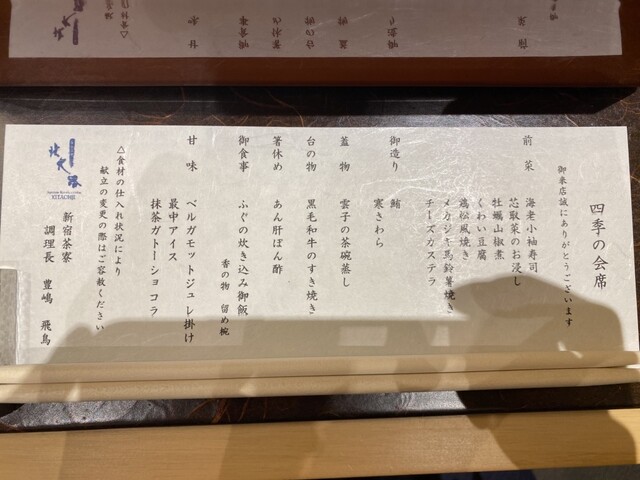 四季の会席
御来店誠にありがとうございます
前菜 海老小袖寿司
芯取菜のお浸し
牡蠣山椒煮
くわい豆腐
魂松風焼き
メカジキ馬鈴薯焼き
チーズカステラ
御造り 鮪
寒さわら
蓋物 雲子の茶碗蒸し
台の物 黒毛和牛のすき焼き
箸休め あん肝ぽん酢
御食事 ふぐの炊き込み御飯
香の物 留め椀
甘味 ベルガモットジュレ掛け
最中アイス
抹茶ガトーショコラ
△食材の仕入れ状況により
献立の変更の際はご容赦ください
新宿茶寮
調理長 豊嶋 飛鳥
北大路
KITAOHJI